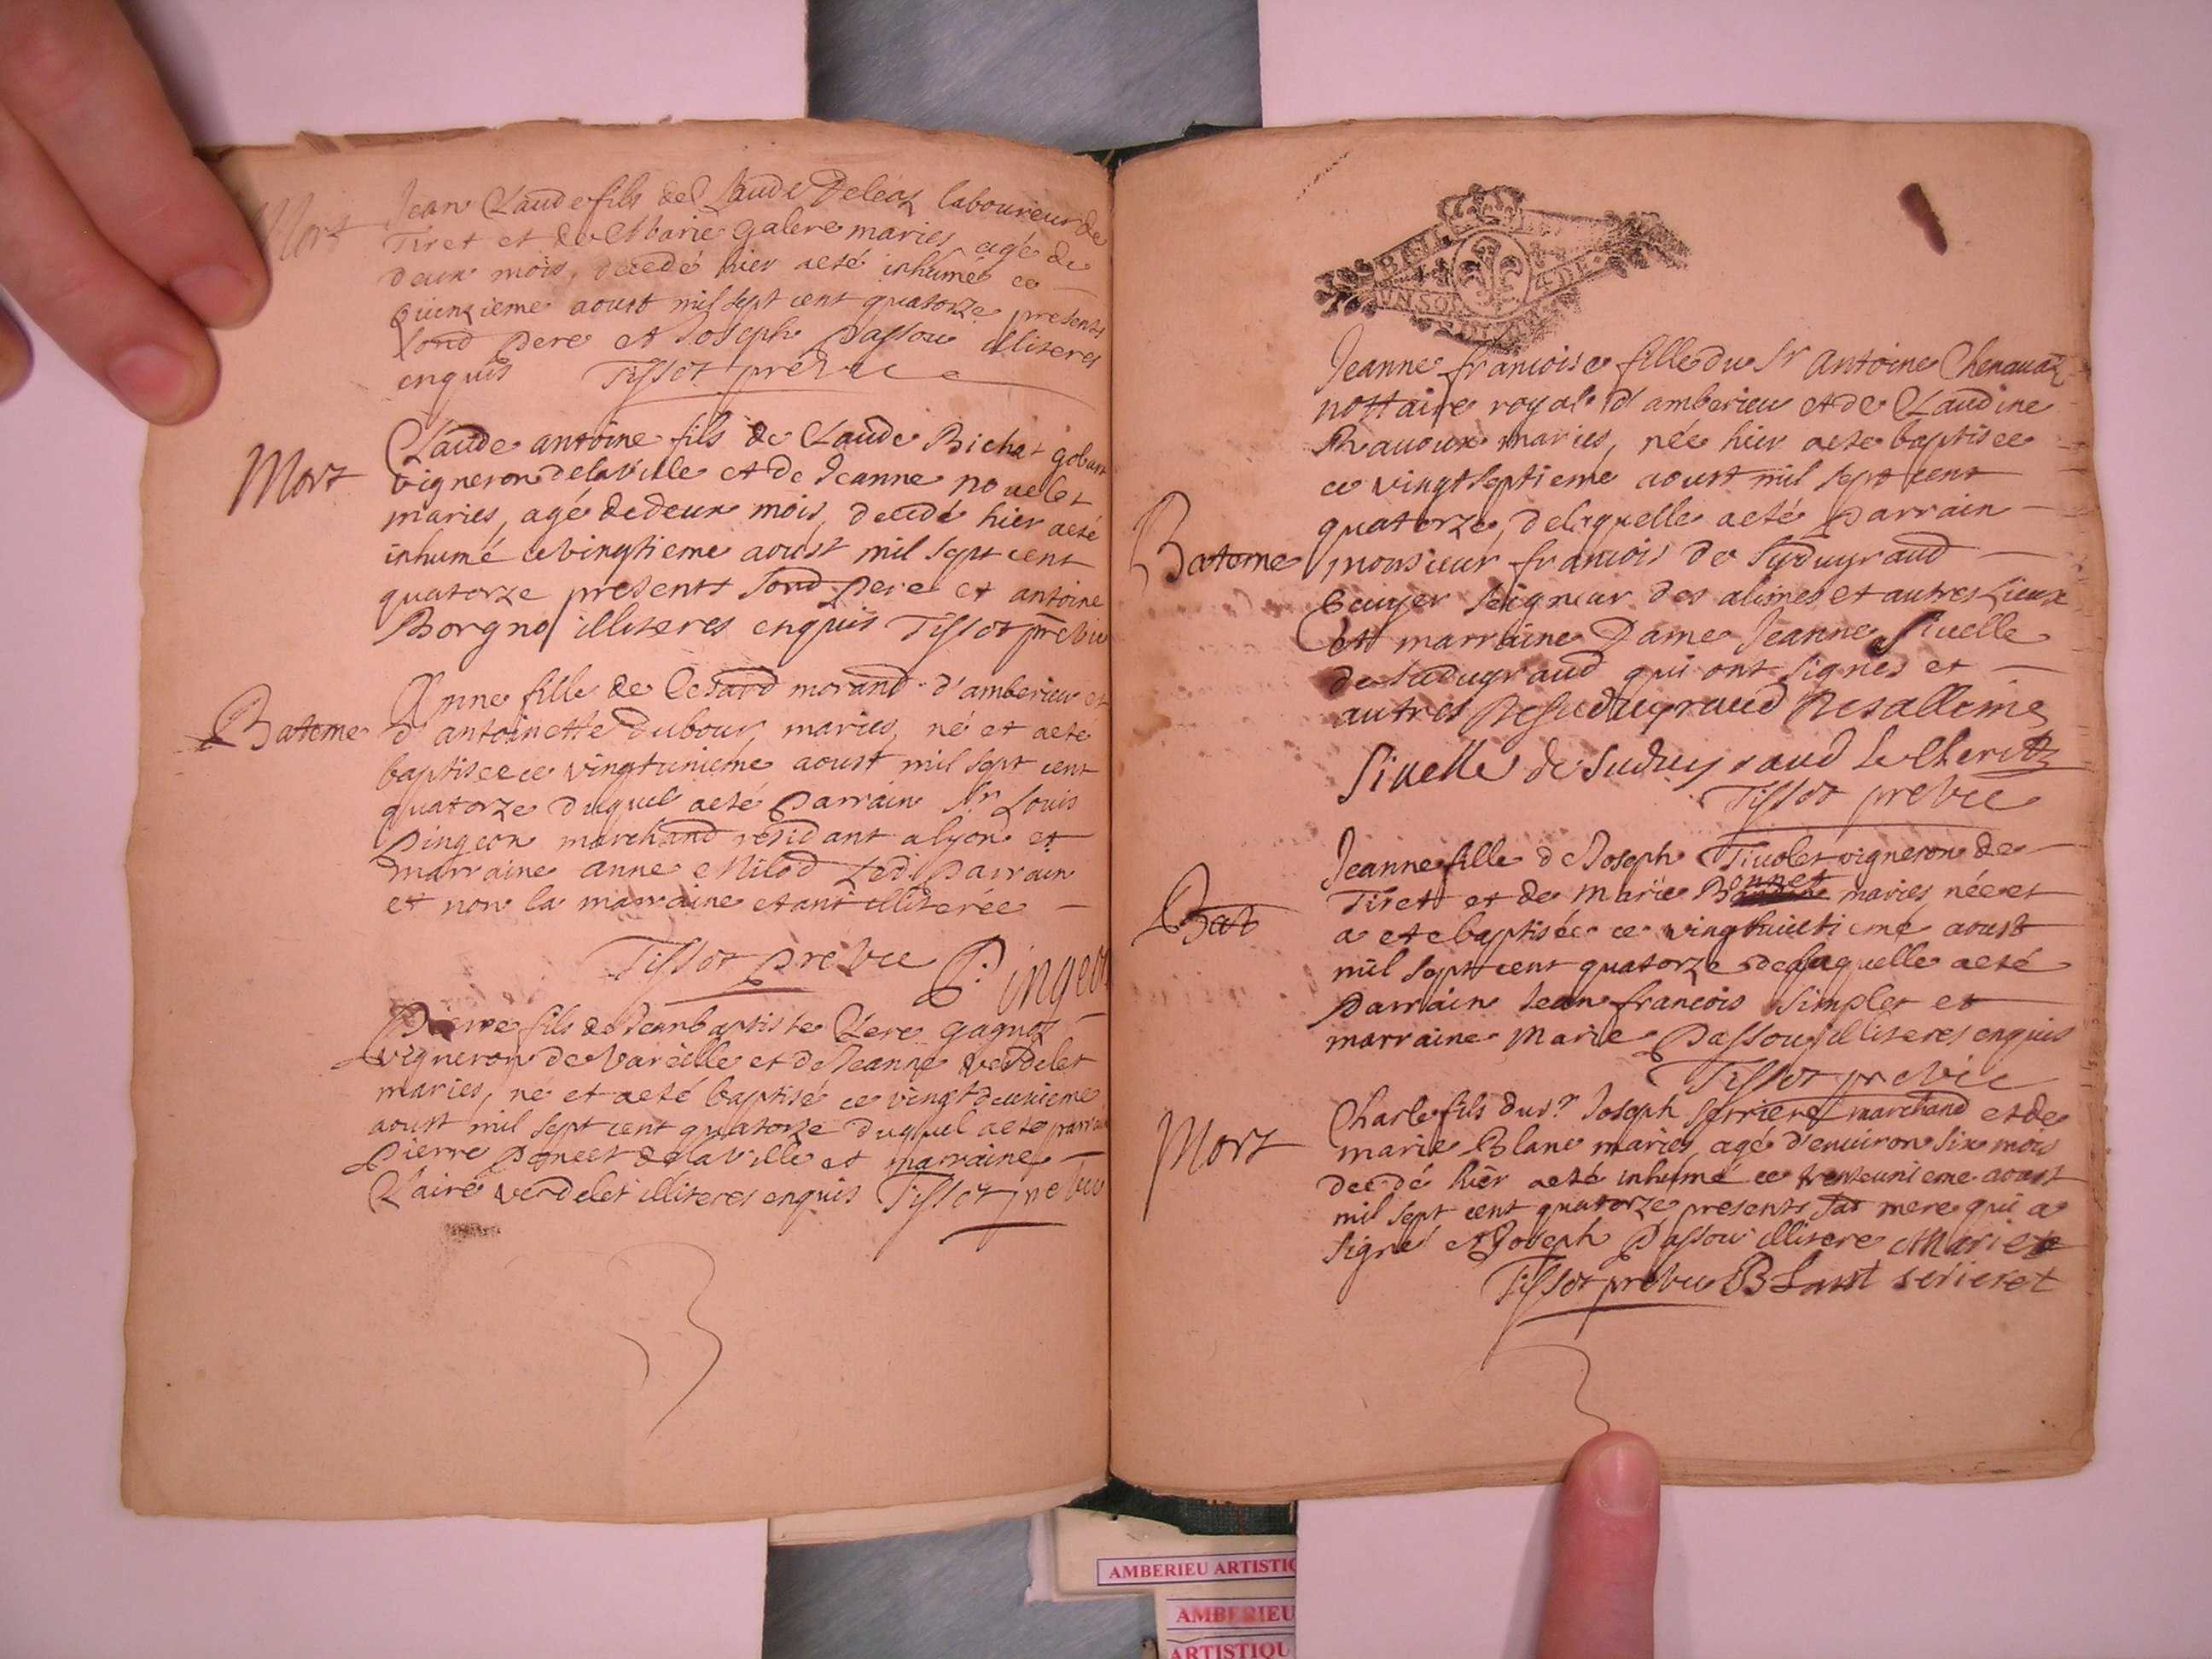 Mort
Jean Claude fils de Claude Deleaz laboureur de
Tiret et de Marie galere maries, agé de
deux mois, decedé hier aeté inhumé ce
quinzieme aoust mil sept cent quatorze presents
sond pere et Joseph Passou illiteres
enquis Tissot prévic
Mort
Claude antoine fils de Claude Bichat gobau
vigneron delaville et de Jeanne novelet
maries, agé dedeux mois, decedé hier aeté
inhumé ce vingtieme aoust mil sept cent
quatorze presents sond pere et antoine
Borgno illiteres enquis Tissot previc
Bateme
Anne fille de Cesard morand d'amberieu et
d'antoinette dubour maries, né et aeté
baptisee ce vingtunieme aoust mil sept cent
quatorze duquel aeté Parrain Sr. Louis
Pingeon marchand residant a lyon et
marraine anne Milod Led. Parrain
et non la marraine etant illiterée
Tissot previc Pingeon
Pierre fils de Jeanbaptiste Clere gagnoz
vigneron de Vareille et de Jeanne verdelet
maries, né et aeté baptisé ce vingtdeuxieme
aoust mil sept cent quatorze duquel aeté parrain
Pierre delaville et marraine
Claire verdelet illiteres enquis Tissot previc
Jeanne francoise fille du Sr Antoine Chenavaz
nottaire royal d'amberieu et de Claudine
Ravoux maries, née hier aeté baptisee
ce vingtseptieme aoust mil sept cent
quatorze, delaquelle aeté Parrain
Bateme
monsieur francois de Suduyraud
Ecuyer Seigneur des alimes et autres Lieux
Et marraine Dame Jeanne Sivelle
de suduyraud qui ont signes et
autres Desuduyraud Desallimes
Sivelle de Suduyraud Le Cheritz
Tissot previc
Bat
Jeanne fille de Joseph Tivolet vigneron de
Tiret et de Marie Bonnet maries née et
a eté baptisée ce vinghuictieme aoust
mil sept cent quatorze de laquelle aeté
Parrain Jean francois Simplet et
marraine Marie Passou illiteres enquis
Tissot previc
Mort
Charle fils du sr. Joseph Serrieret marchand et de
marie Blanc maries, agé d'environ six mois
decedé hier aeté inhumé ce trenteunieme aoust
mil sept cent quatorze presents sad mere qui a
signé et Joseph Passou illitere Marie
Tissot previc Blant serieret
AMBERIEU ARTISTIQ
AMBERIEU
ARTISTIQU